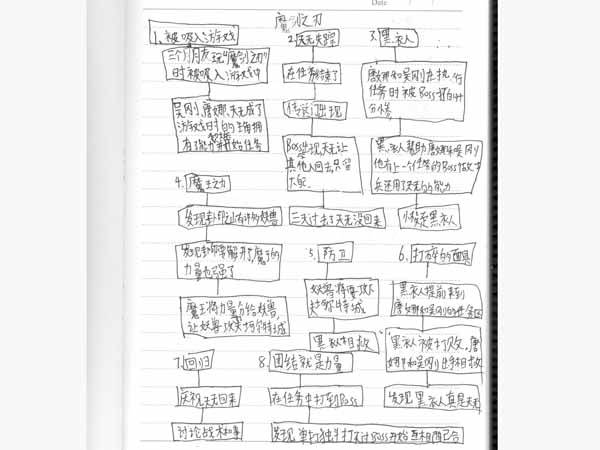 Date
魔剑之力
1. 被吸入游戏
三个小朋友玩"魔剑之力"
时被吸入游戏中
吴刚、唐娜、天无成了
游戏时的
有能力并开始任务
2. 天无失踪
在任务结束了
传送门出现
Boss发现天无让
其他人回去,只留
天无
三天过去了天无没回来
3. 黑衣人
唐娜和吴刚在执行
任务时被Boss打的十
分惨
黑衣人帮助唐娜和吴刚
他有上一个任务的Boss做
兵还用了天无的能力
小月是黑衣人
4. 魔王之力
发现卦印山有许多妖兽
发现卦印解开了魔王的
力量也强了
魔王将力量分给妖兽,
让妖兽攻特城
5. 防卫
妖兽将要攻
特城
黑衣人相救
6. 打碎的面具
黑衣人提前来到
唐娜和吴刚的
黑衣人被打败,唐
娜和吴刚出手相救
发现黑衣人真是天无
7. 回归
庆祝天无回来
讨论战术和事
8. 团结就是力量
在任务中打到Boss
发现单打独斗打不过Boss开始互相配合